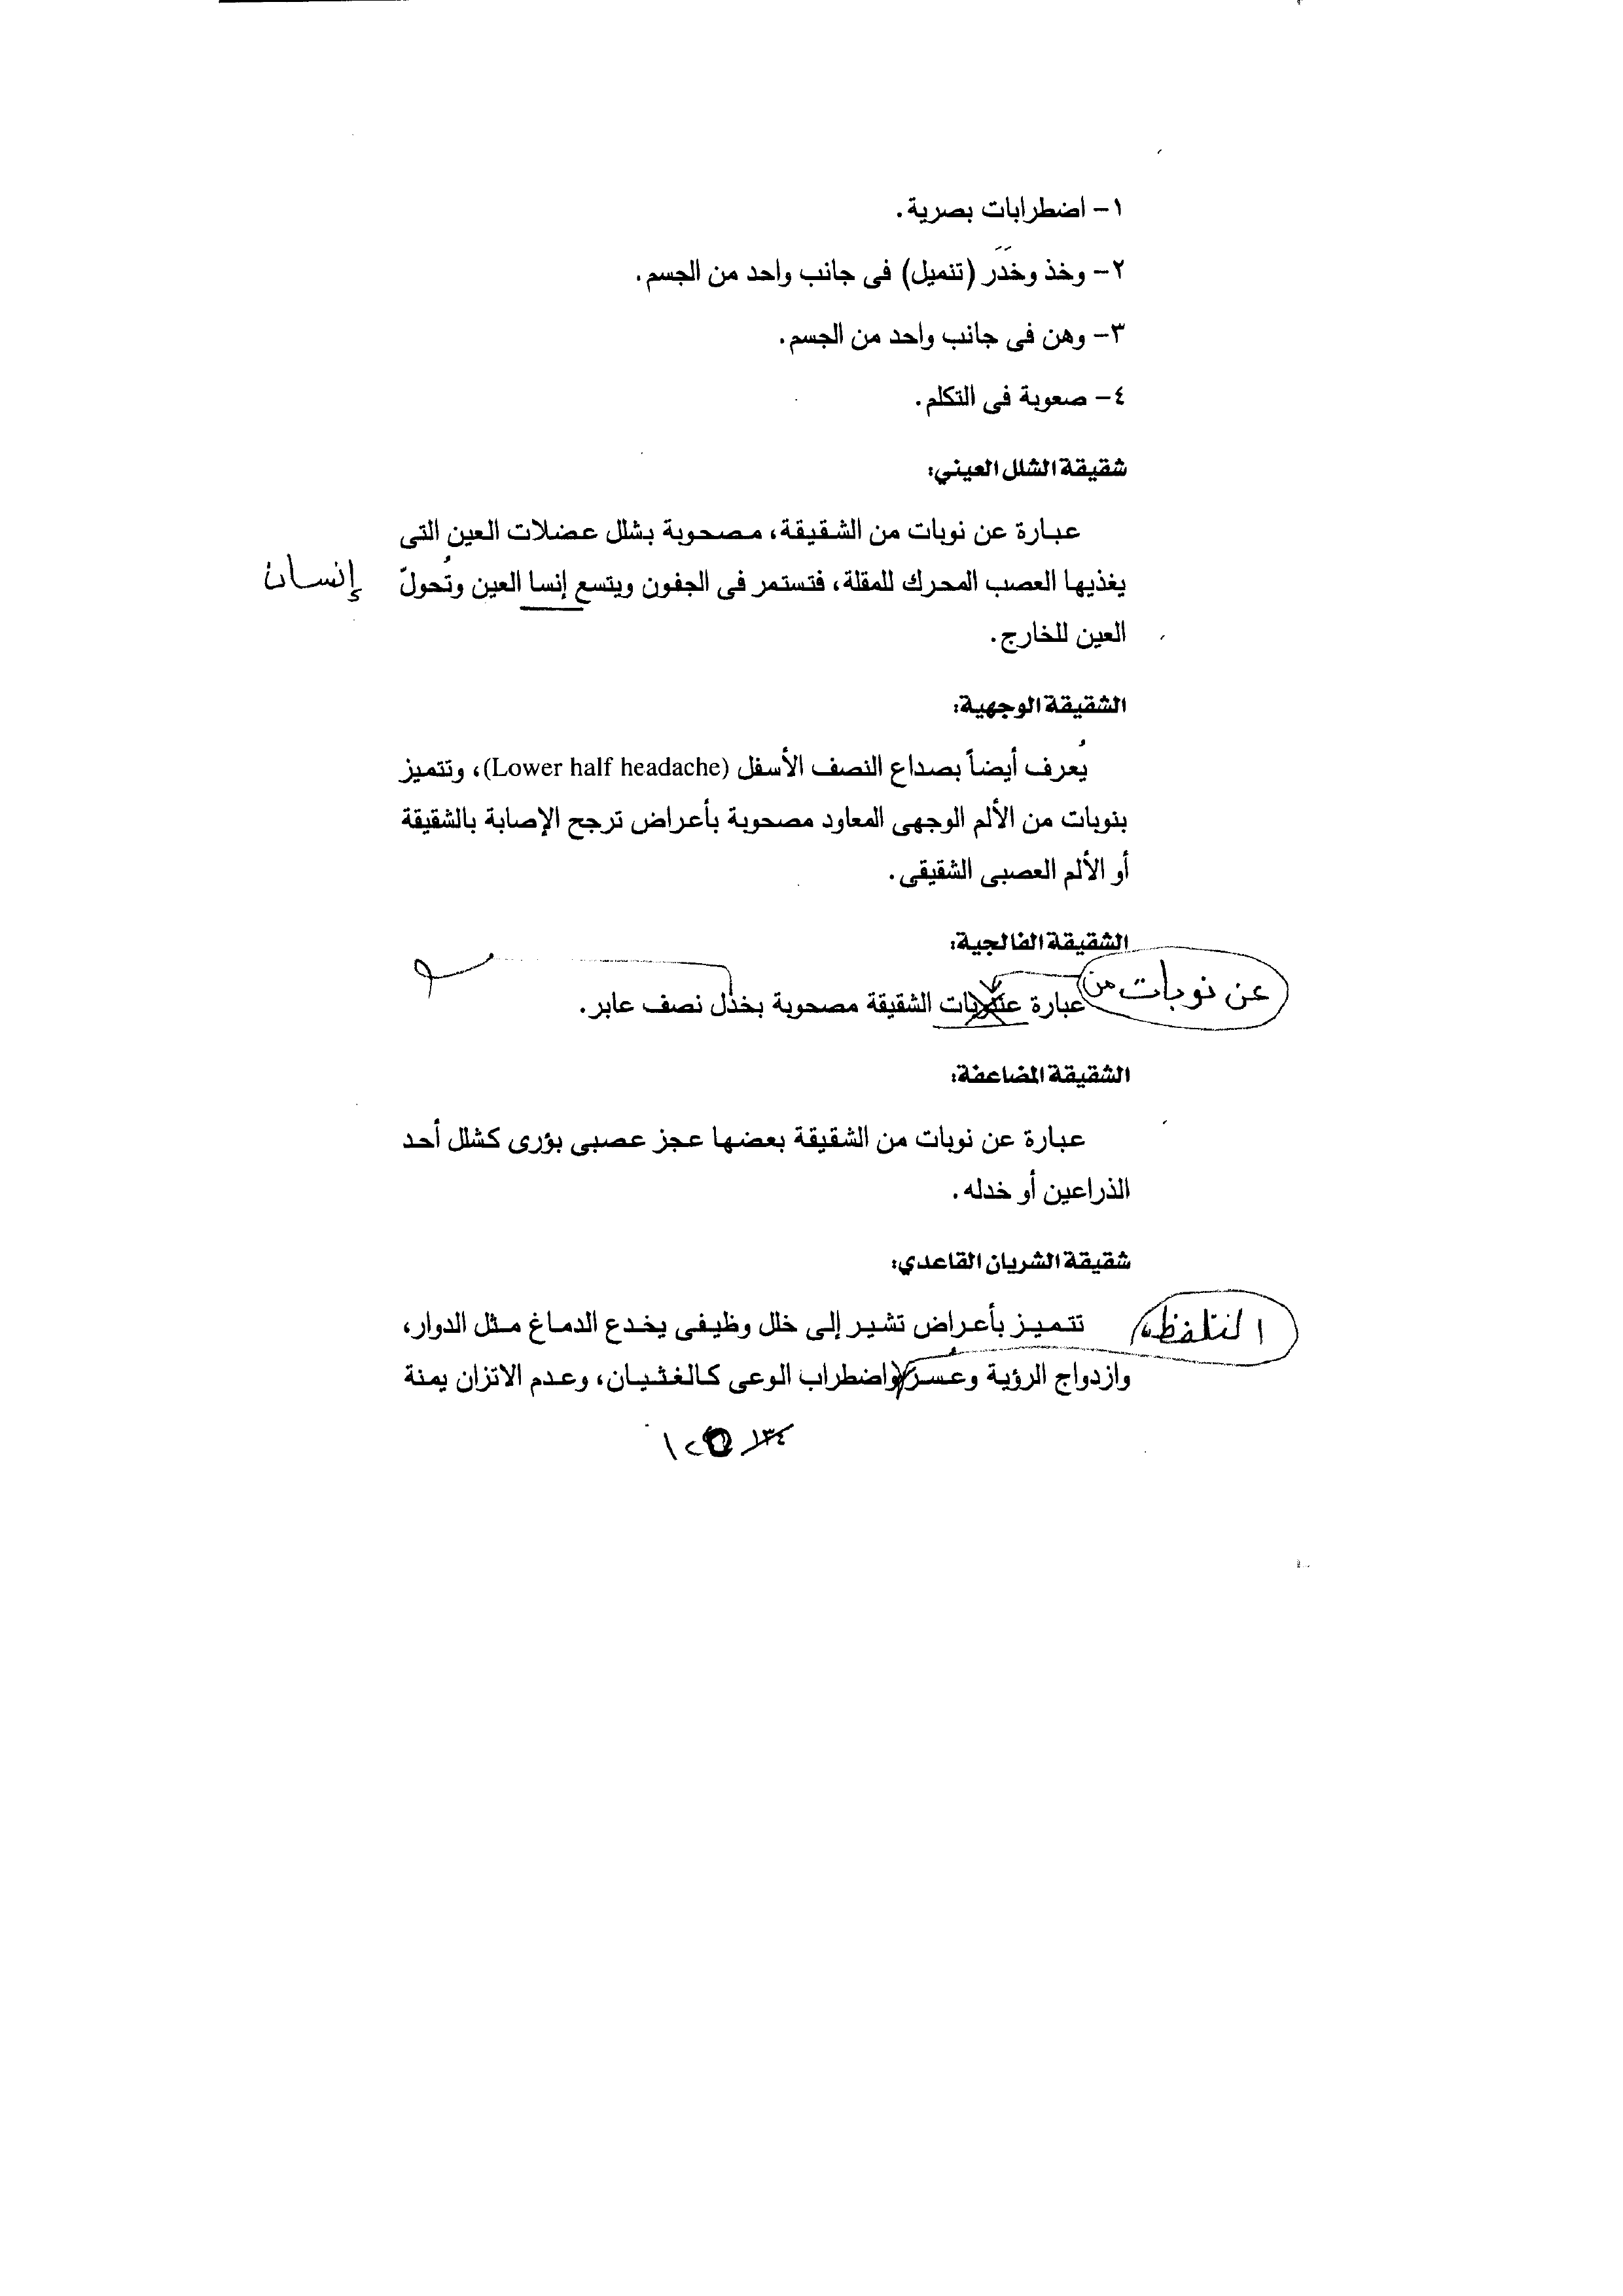 ١- اضطرابات بصرية.
٢- وخذ وخَدَر (تنميل) فى جانب واحد من الجسم.
٣- وهن فى جانب واحد من الجسم.
٤- صعوبة فى التكلم.
شقيقة الشلل العيني:
عبارة عن نوبات من الشقيقة، مصحوبة بشلل عضلات العين التى
يغذيها العصب المحرك للمقلة، فتستمر فى الجفون ويتسع إنسا العين وتُحولّ
إنسان
العين للخارج.
الشقيقة الوجهية:
يُعرف أيضاً بصداع النصف الأسفل (Lower half headache)، وتتميز
بنوبات من الألم الوجهى المعاود مصحوبة بأعراض ترجح الإصابة بالشقيقة
أو الألم العصبى الشقيقى.
الشقيقة الفالجية:
عن نوبات من
عبارة الشقيقة مصحوبة بخذل نصف عابر.
الشقيقة المضاعفة:
عبارة عن نوبات من الشقيقة بعضها عجز عصبى بؤرى كشلل أحد
الذراعين أو خدله.
شقيقة الشريان القاعدي:
تتميز بأعراض تشير إلى خلل وظيفى يخدع الدماغ مثل الدوار،
التلفظ،
وازدواج الرؤية وعسر واضطراب الوعى كالغثيان، وعدم الاتزان يمنة
١٣٤